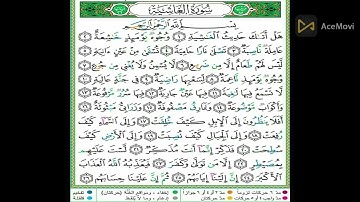 AceMovi
سُورَةُ الْغَاشِيَةِ
بِسْمِ اللَّهِ الرَّحْمَٰنِ الرَّحِيمِ
هَلْ أَتَىٰكَ حَدِيثُ الْغَٰشِيَةِ ١ وُجُوهٌ يَوْمَئِذٍ خَٰشِعَةٌ ٢
عَامِلَةٌ نَّاصِبَةٌ ٣ تَصْلَىٰ نَارًا حَامِيَةً ٤ تُسْقَىٰ مِنْ عَيْنٍ ءَانِيَةٍ ٥
لَّيْسَ لَهُمْ طَعَامٌ إِلَّا مِن ضَرِيعٍ ٦ لَّا يُسْمِنُ وَلَا يُغْنِي مِن جُوعٍ
٧ وُجُوهٌ يَوْمَئِذٍ نَّاعِمَةٌ ٨ لِّسَعْيِهَا رَاضِيَةٌ ٩ فِي جَنَّةٍ عَالِيَةٍ
١٠ لَّا تَسْمَعُ فِيهَا لَٰغِيَةً ١١ فِيهَا عَيْنٌ جَارِيَةٌ ١٢ فِيهَا سُرُرٌ مَّرْفُوعَةٌ
١٣ وَأَكْوَابٌ مَّوْضُوعَةٌ ١٤ وَنَمَارِقُ مَصْفُوفَةٌ ١٥ وَزَرَابِيُّ مَبْثُوثَةٌ
١٦ أَفَلَا يَنظُرُونَ إِلَى الْإِبِلِ كَيْفَ خُلِقَتْ ١٧ وَإِلَى السَّمَاءِ كَيْفَ
رُفِعَتْ ١٨ وَإِلَى الْجِبَالِ كَيْفَ نُصِبَتْ ١٩ وَإِلَى الْأَرْضِ كَيْفَ
سُطِحَتْ ٢٠ فَذَكِّرْ إِنَّمَا أَنتَ مُذَكِّرٌ ٢١ لَّسْتَ عَلَيْهِم
بِمُصَيْطِرٍ ٢٢ إِلَّا مَن تَوَلَّىٰ وَكَفَرَ ٢٣ فَيُعَذِّبُهُ اللَّهُ الْعَذَابَ
الْأَكْبَرَ ٢٤ إِنَّ إِلَيْنَا إِيَابَهُمْ ٢٥ ثُمَّ إِنَّ عَلَيْنَا حِسَابَهُم ٢٦